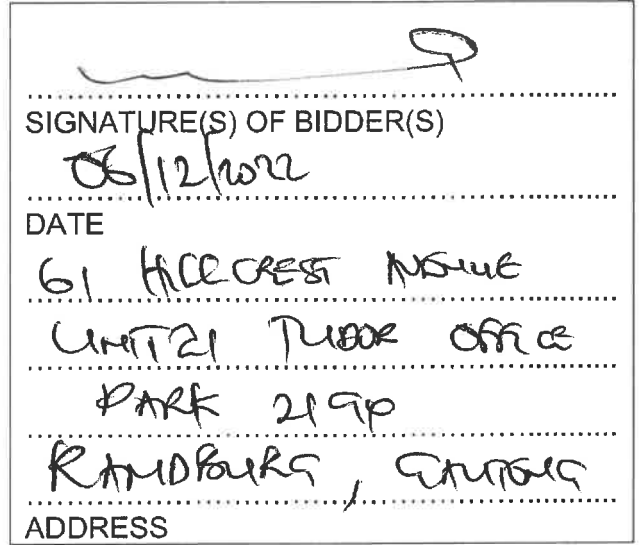 SIGNATURE(S) OF BIDDER(S)
06/12/2022
DATE
61 HILLCREST AVENUE
UNIT 21 TUDOR OFFICE
PARK 2194
RANDBURG, GAUTENG
ADDRESS